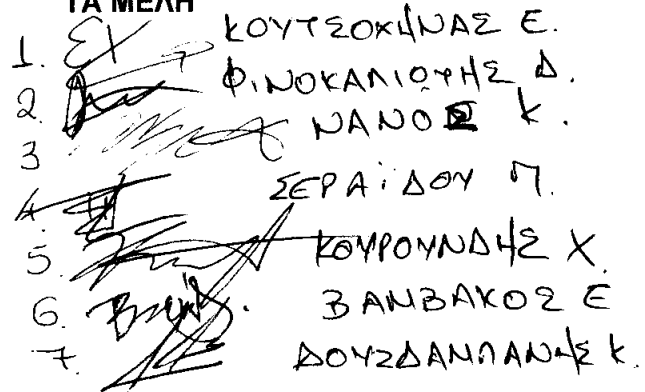 ΤΑ ΜΕΛΗ
1. ΚΟΥΤΣΟΧΗΝΑΣ Ε.
2. ΦΙΝΟΚΑΛΙΩΤΗΣ Δ.
3 ΝΑΝΟΣ Κ.
4. ΣΕΡΑΪΔΟΥ Π.
5. ΚΟΥΡΟΥΝΔΗΣ Χ.
6. ΒΑΜΒΑΚΟΣ Ε
7. ΔΟΥΖΔΑΜΠΑΝΗΣ Κ.